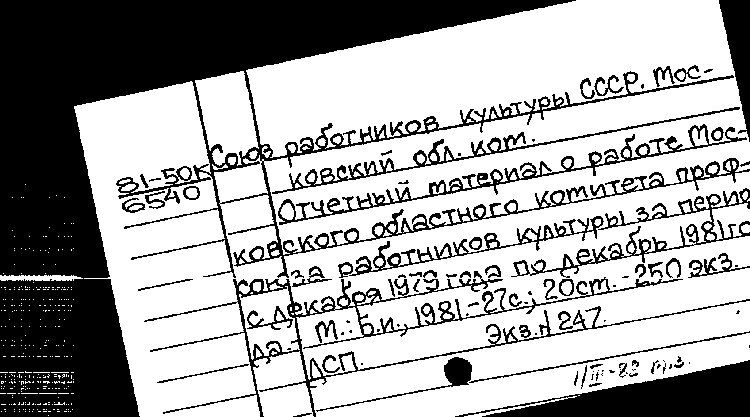 81-50к
6540
Союз работников культуры СССР. Мос-
ковский обл. ком.
Отчетный материал о работе Мос-
ковского областного комитета проф-
союза работников культуры за период
с декабря 1979 года по декабрь 1981 го
да.- М.: Б.и., 1981.-27с.; 20см.-250 экз.
ДСП. Экз.№247.
1/III-82